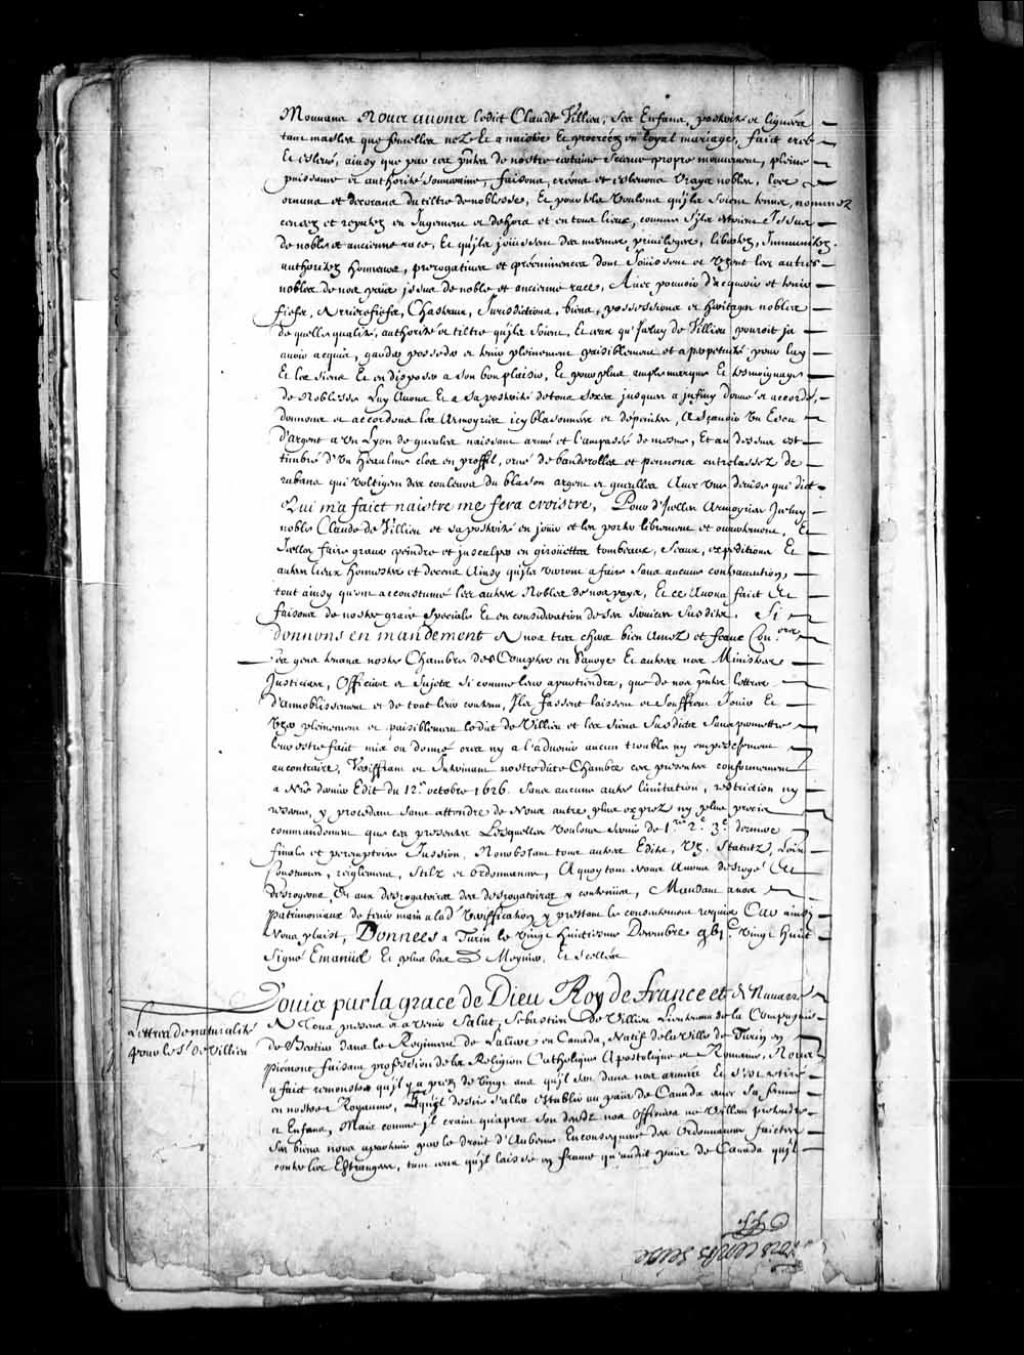 Mouuans Nous auons ledict Claude Villieu, ses Enfans, posterité et lignée
tant masles que femelles nez Et a naistre Et procreéz en loyal mariage, faict creé
Et esleué, ainsy que par ces pntes de nostre certaine science propre mouuement, pleine
puissance et authorité souueraine, faisons, creons et esleuons Vrays nobles, les
ornons et decorons du tiltre de noblesse, Et pour tels Voulons qu'ils soient tenus, nommez
censez et reputez en Jugement et dehors et en tous lieux, comme s'ils estoient Issus
de noble et ancienne race, Et qu'ils jouissent des mesmes priuileges, libertez, Immunitez
authoritez honneurs, prerogatiues et preéminences dont Jouissent et Vsent les autres
nobles de nos païs issus de noble et ancienne race, Auec pouuoir d'acquerir et tenir
fiefs, Arrierefiefs, Chasteaux, Jurisdictions, biens, possessions et heritages nobles
de quelle qualité, authorité et tiltre qu'ils soient, Et ceux qu'Iceluy de Villieu pouroit ja
auoir acquis, garder posseder et tenir pleinement paisiblement et a perpetuité pour luy
Et les siens Et en disposer a son bon plaisir, Et pour plus ample marque Et tesmoignage
de Noblesse Luy Auons Et a sa posterité de tous sexes jusques a jnfiny donné et accordé,
donnons et accordons les Armoyries icy blasonneés et dépeintes, Asçauoir Vn Escu
d'argent a Vn Lyon de gueules naissant armé et l'ampassé de mesme, Et au dessus est
timbré d'Vn heaulme clos en proffil, orné de banderolles et pennons entrelassez de
rubans qui Voltigent des couleurs du blason argent et gueulles Auec Vne deuise qui dict
Qui m'a faict naistre me fera croistre, Pour d'Icelles Armoyries Jceluy
noble Claude de Villieu et sa posterité en jouir et les porter librement et ouuertement, Et
Icelles faire grauer peindre et jnsculper en girouëttes tombeaux, Seaux, expeditions Et
autres lieux honnestes et decens Ainsy qu'ils verront a faire sans aucune contrauention,
tout ainsy qu'ont accoustumé les autres Nobles de nos pays, Et ce Auons faict Et
faisons de nostre grace speciale Et en consideration de ses seruices Susdits. Si
donnons en mandement A nos tres chers bien Amez et feaux Con.ers
Les gens tenans nostre Chambre des Comptes en Sauoye Et autres nos Ministres
Justiciers, Officiers et Sujets Si comme leur apartiendra, que de nos pntes lettres
d'annoblissement et de tout leur contenu, Ils fassent laissent et souffrent Jouir Et
Vser pleinement et paisiblement ledict de Villieu et les siens Susdicts Sans permettre
leur estre faict mis ou donné ores ny a l'aduenir aucun trouble ny empeschement
au contraire, Veriffiant et Intherinant nostredicte Chambre ces presentes conformement
a Nre dernier Edit du 12e octobre 1626. Sans aucune autre limitation, restriction ny
reserue, y procedant sans attendre de Nous autre plus exprez ny plus precis
commandement que ces presentes Lesquelles Voulons seruir de 1re 2e 3e derniere
finale et peremptoire Jussion, Nonobstant tous autres Edits, Vz. Statutz, Loix
Constumes, reiglemens, Stilz et ordonnances, A quoy tous Nous Auons desrogé Et
desrogeons, Et aux desrogatoires des desrogatoires y contenües, Mandant a nos
patrimoniaux de tenir main a lad Veriffication y prestant le consentement requis Car ainsy
Nous plaist, Données a Turin le Vingt huictiesme Decembre gbj.c Vingt huict
Signé Emanuel Et plus bas D Meynier, Et Scellées
Louis par la grace de Dieu Roy de france et de Nauarre
A Tous presens et a Venir Salut, Sebastien de Villieu Lieutenant de la Compagnie
de Bertier dans le Regiment de Laliere en Canada, Natif de la Ville de Turin en
piémont faisant profession de la Religion Catholique Apostolique et Romaine, Nous
a faict remonstrer qu'il y a prez de Vingt ans qu'il sert dans nos armées Et s'est retiré
en nostre Royaume, Et qu'il desire s'aller establir au païs de Canada auec sa femme
et Enfans, Mais comme il craint qu'apres son deceds nos Officiers ne Vueillent pretendre
Ses biens nous apartenir par le droit d'Aubeine En consequence des Ordonnances faictes
contre les Estrangers, tant ceux qu'il laissera en france qu'audit païs de Canada qu'il
Lettres de naturalité
pour le Sr. de Villieu
Trois cents seize